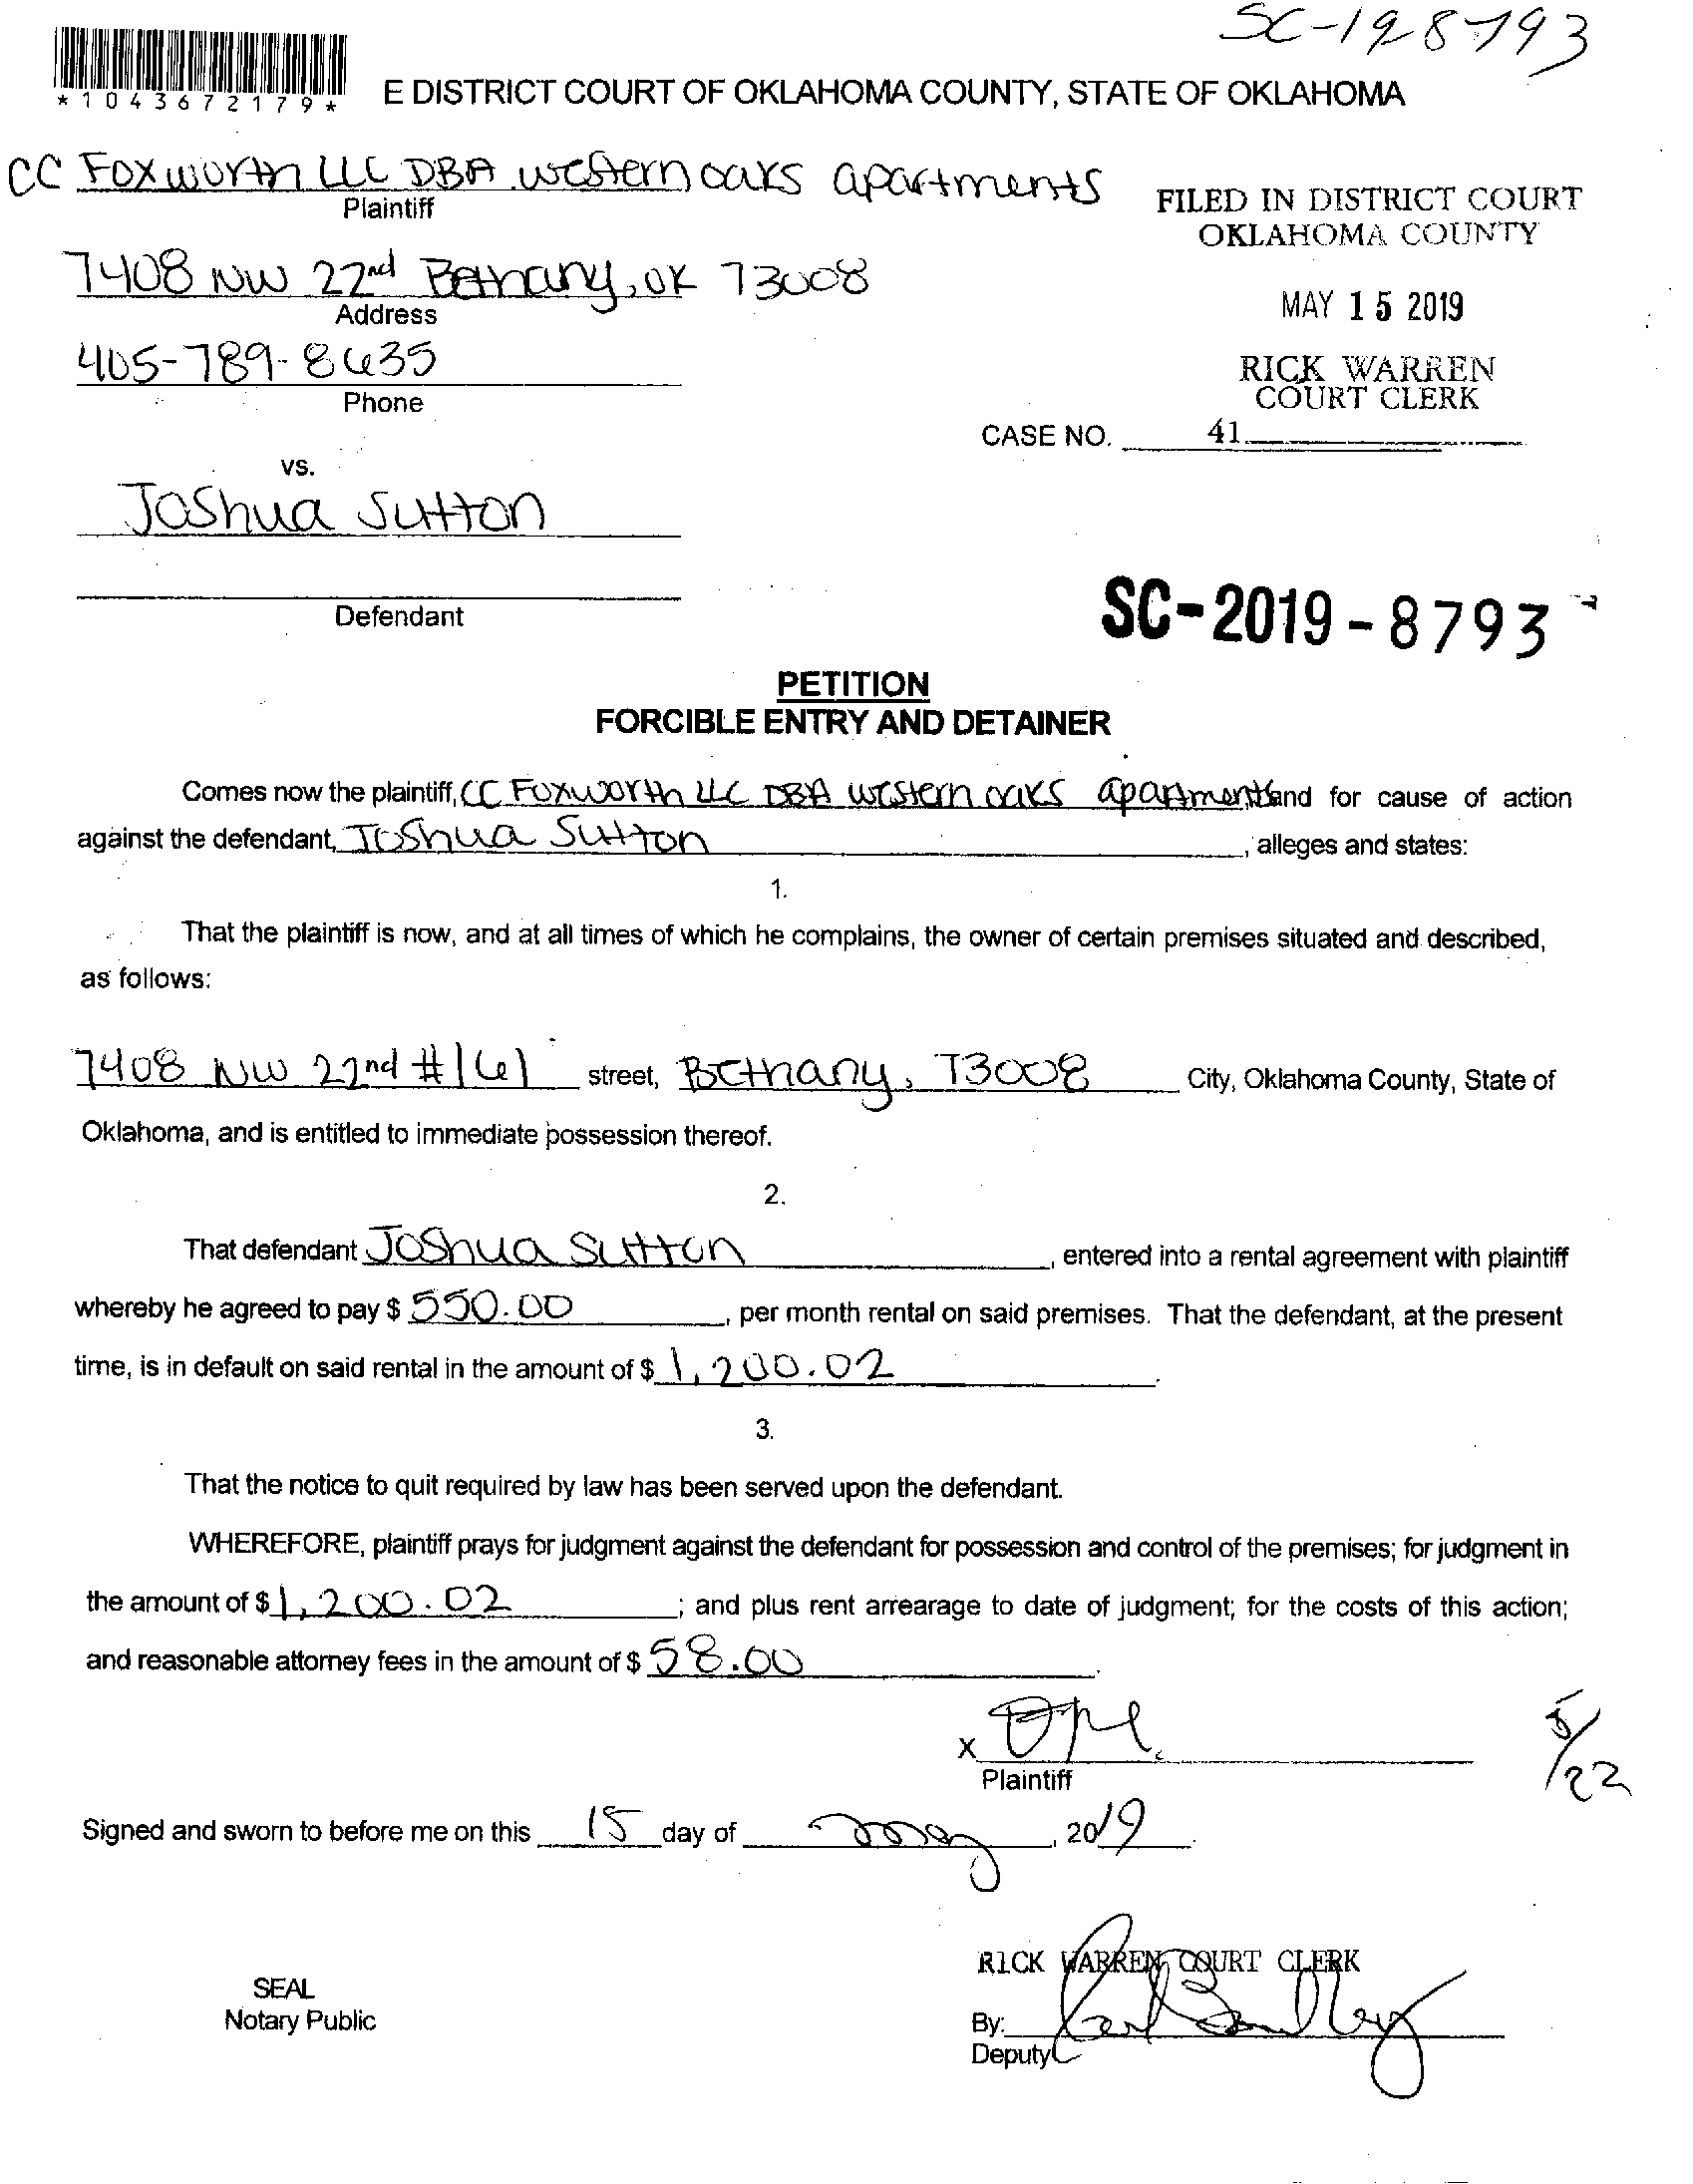 SC-19-8793
*1043672179*
E DISTRICT COURT OF OKLAHOMA COUNTY, STATE OF OKLAHOMA
CC Foxworth LLC DBA western oaks apartments
Plaintiff
FILED IN DISTRICT COURT
OKLAHOMA COUNTY
7408 NW 22nd Bethany, OK 73008
Address
MAY 15 2019
405-789-8635
Phone
RICK WARREN
COURT CLERK
CASE NO. 41
vs.
Joshua Sutton
Defendant
SC-2019-8793
PETITION
FORCIBLE ENTRY AND DETAINER
Comes now the plaintiff, CC Foxworth LLC DBA western oaks apartments and for cause of action
against the defendant, Joshua Sutton, alleges and states:
1.
That the plaintiff is now, and at all times of which he complains, the owner of certain premises situated and described,
as follows:
7408 NW 22nd #161 street, Bethany, 73008 City, Oklahoma County, State of
Oklahoma, and is entitled to immediate possession thereof.
2.
That defendant Joshua Sutton, entered into a rental agreement with plaintiff
whereby he agreed to pay $ 550.00, per month rental on said premises. That the defendant, at the present
time, is in default on said rental in the amount of $ 1,200.02.
3.
That the notice to quit required by law has been served upon the defendant.
WHEREFORE, plaintiff prays for judgment against the defendant for possession and control of the premises; for judgment in
the amount of $ 1,200.02; and plus rent arrearage to date of judgment; for the costs of this action;
and reasonable attorney fees in the amount of $ 58.00.
x
Plaintiff
5/22
Signed and sworn to before me on this 15 day of May, 2019.
RICK WARREN COURT CLERK
SEAL
Notary Public
By:
Deputy